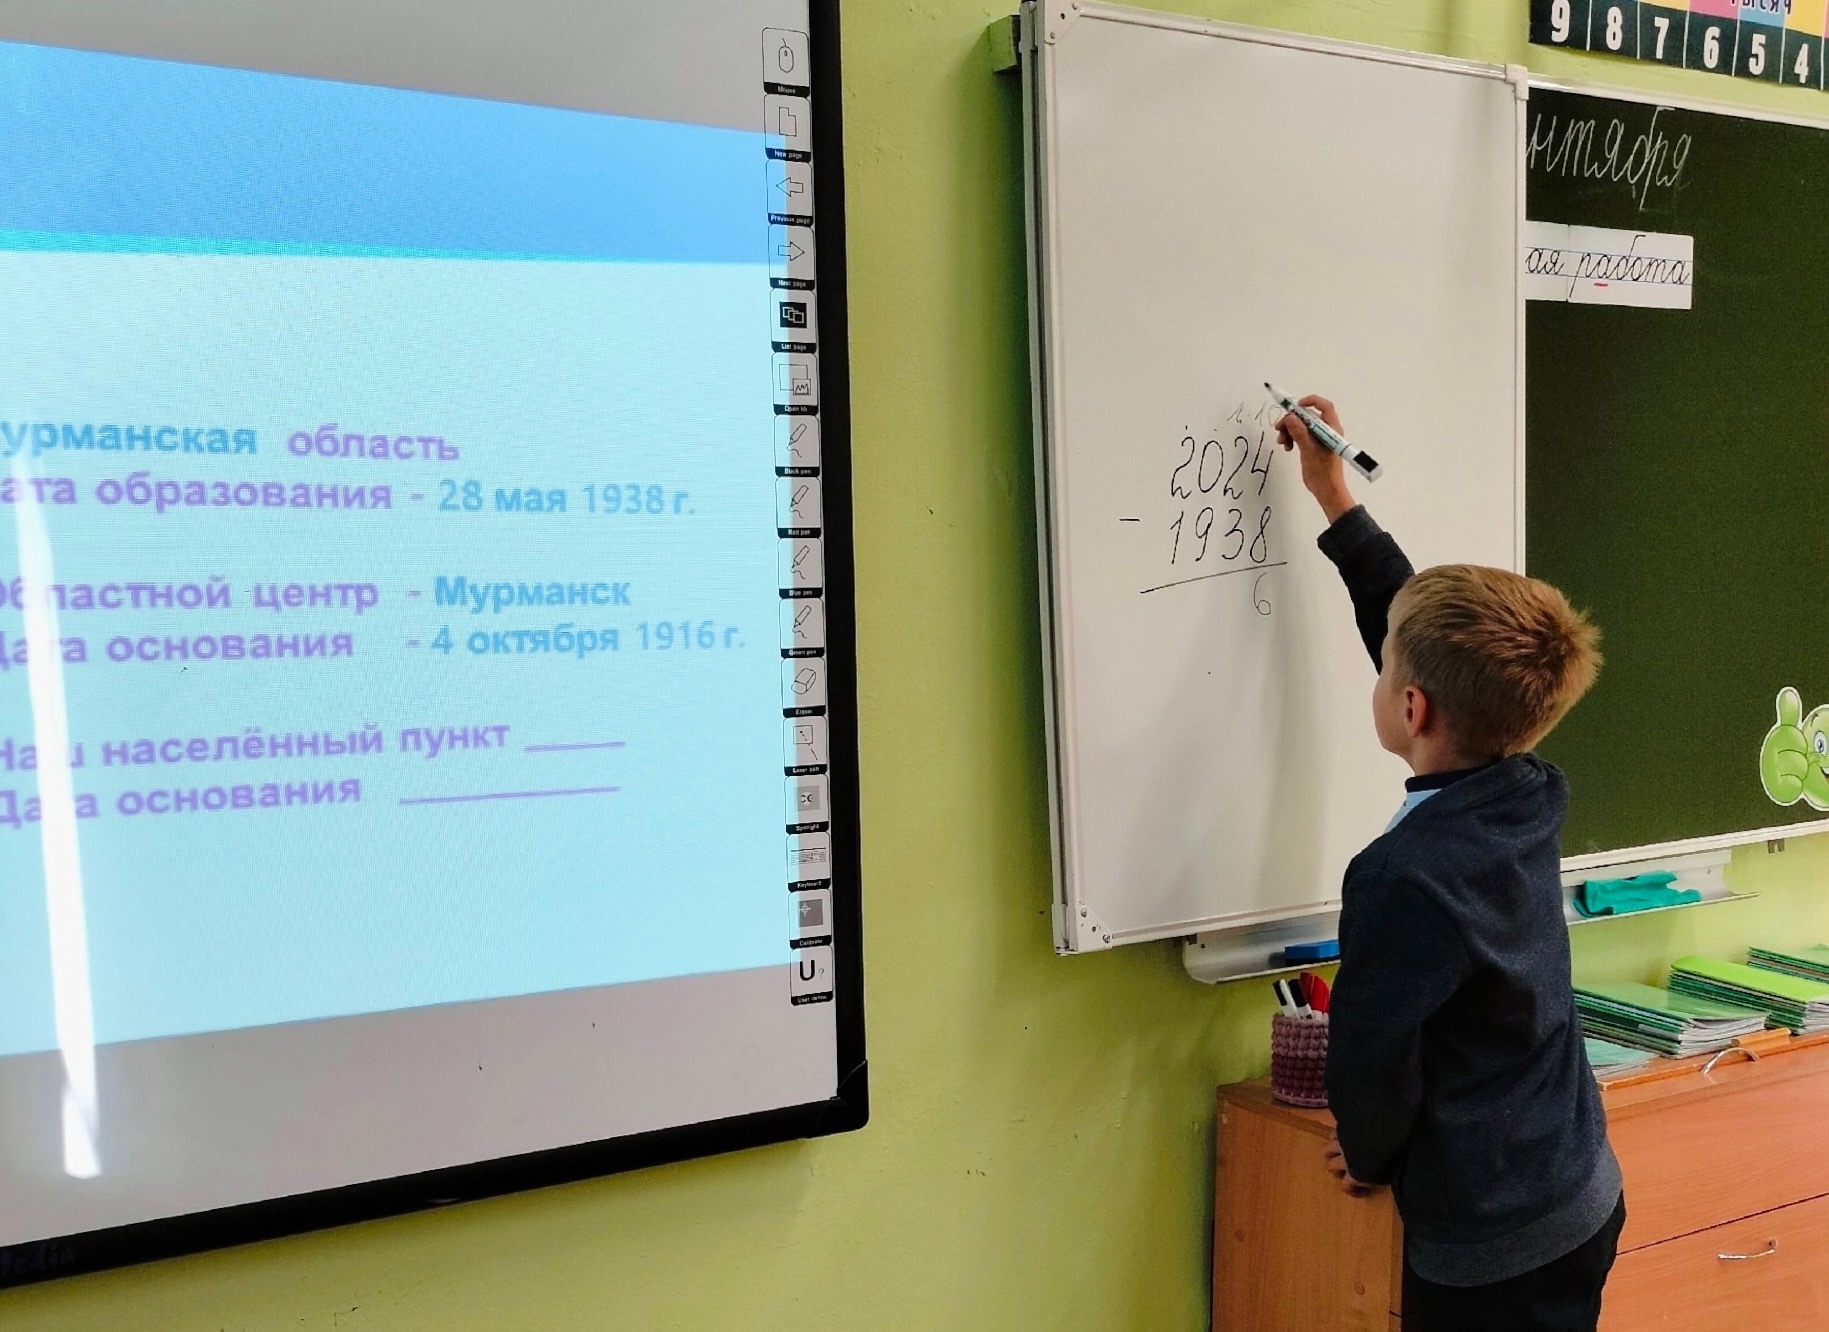 урманская область
ата образования - 28 мая 1938 г.
Областной центр - Мурманск
Дата основания - 4 октября 1916 г.
Наш населённый пункт ____
Дата основания ________
Mouse
New page
Previous page
Next page
List page
Black pen
Red pen
Blue pen
Green pen
Eraser
Laser pen
Spotlight
Keyboard
Calibrate
U?
2024
- 1938
6
тысяч
9 8 7 6 5 4
нтября
ая работа